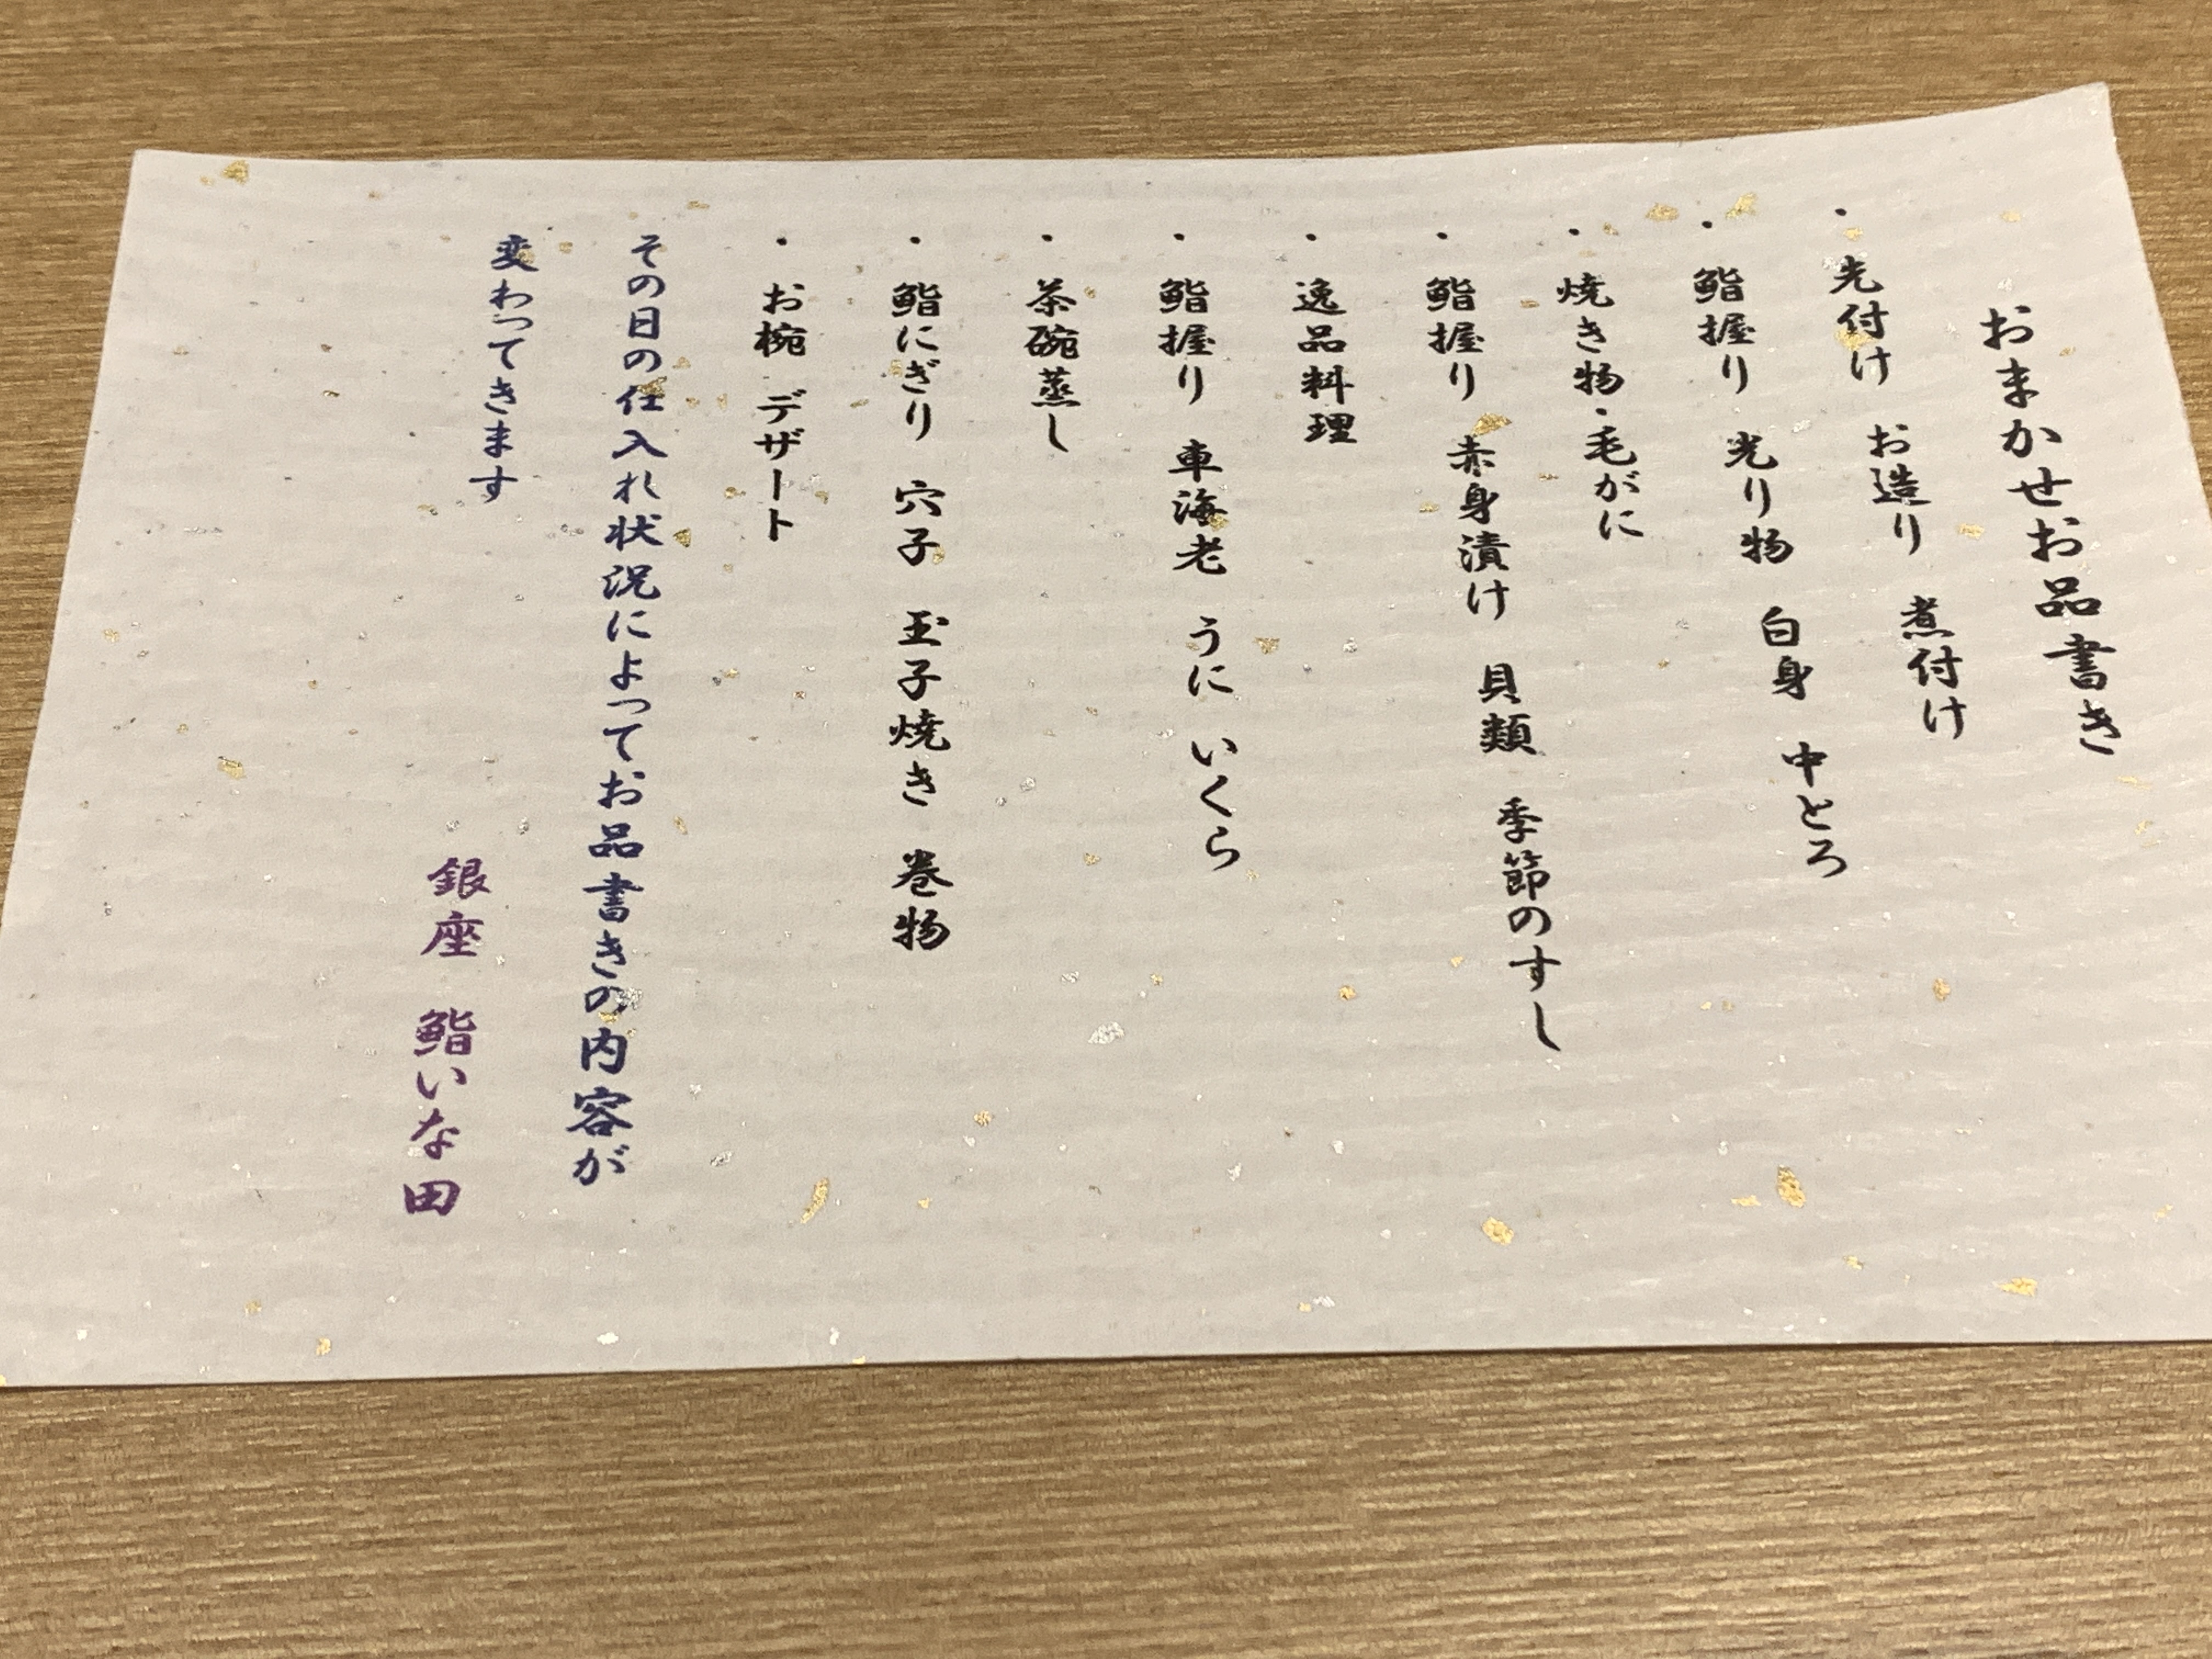 おまかせお品書き
・先付け お造り 煮付け
・鮨握り 光り物 白身 中とろ
・焼き物・毛がに
・鮨握り 赤身漬け 貝類 季節のすし
・逸品料理
・鮨握り 車海老 うに いくら
・茶碗蒸し
・鮨にぎり 穴子 玉子焼き 巻物
・お椀 デザート
その日の仕入れ状況によってお品書きの内容が
変わってきます
銀座 鮨いな田